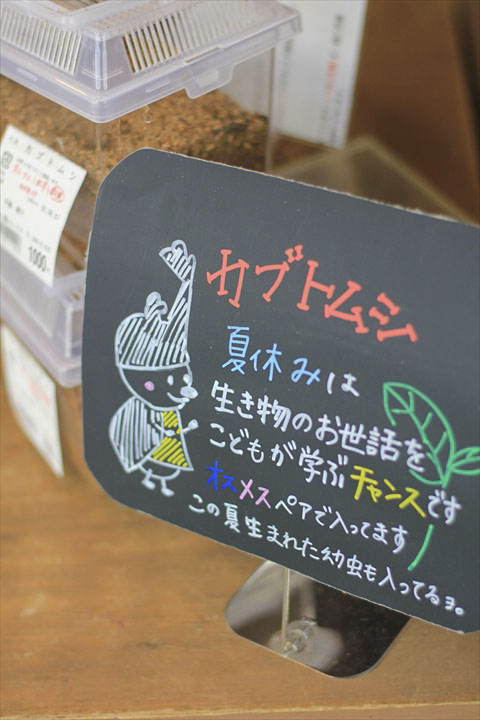 カブトムシ
1000
カブトムシ
夏休みは
生き物のお世話を
こどもが学ぶチャンスです
オスメスペアで入ってます
この夏生まれた幼虫も入ってるョ。